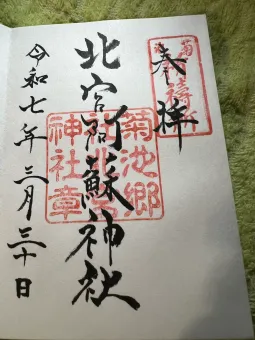 奉拝
北宮阿蘇神社
菊池郷
社北宮
神社章
令和七年三月三十日